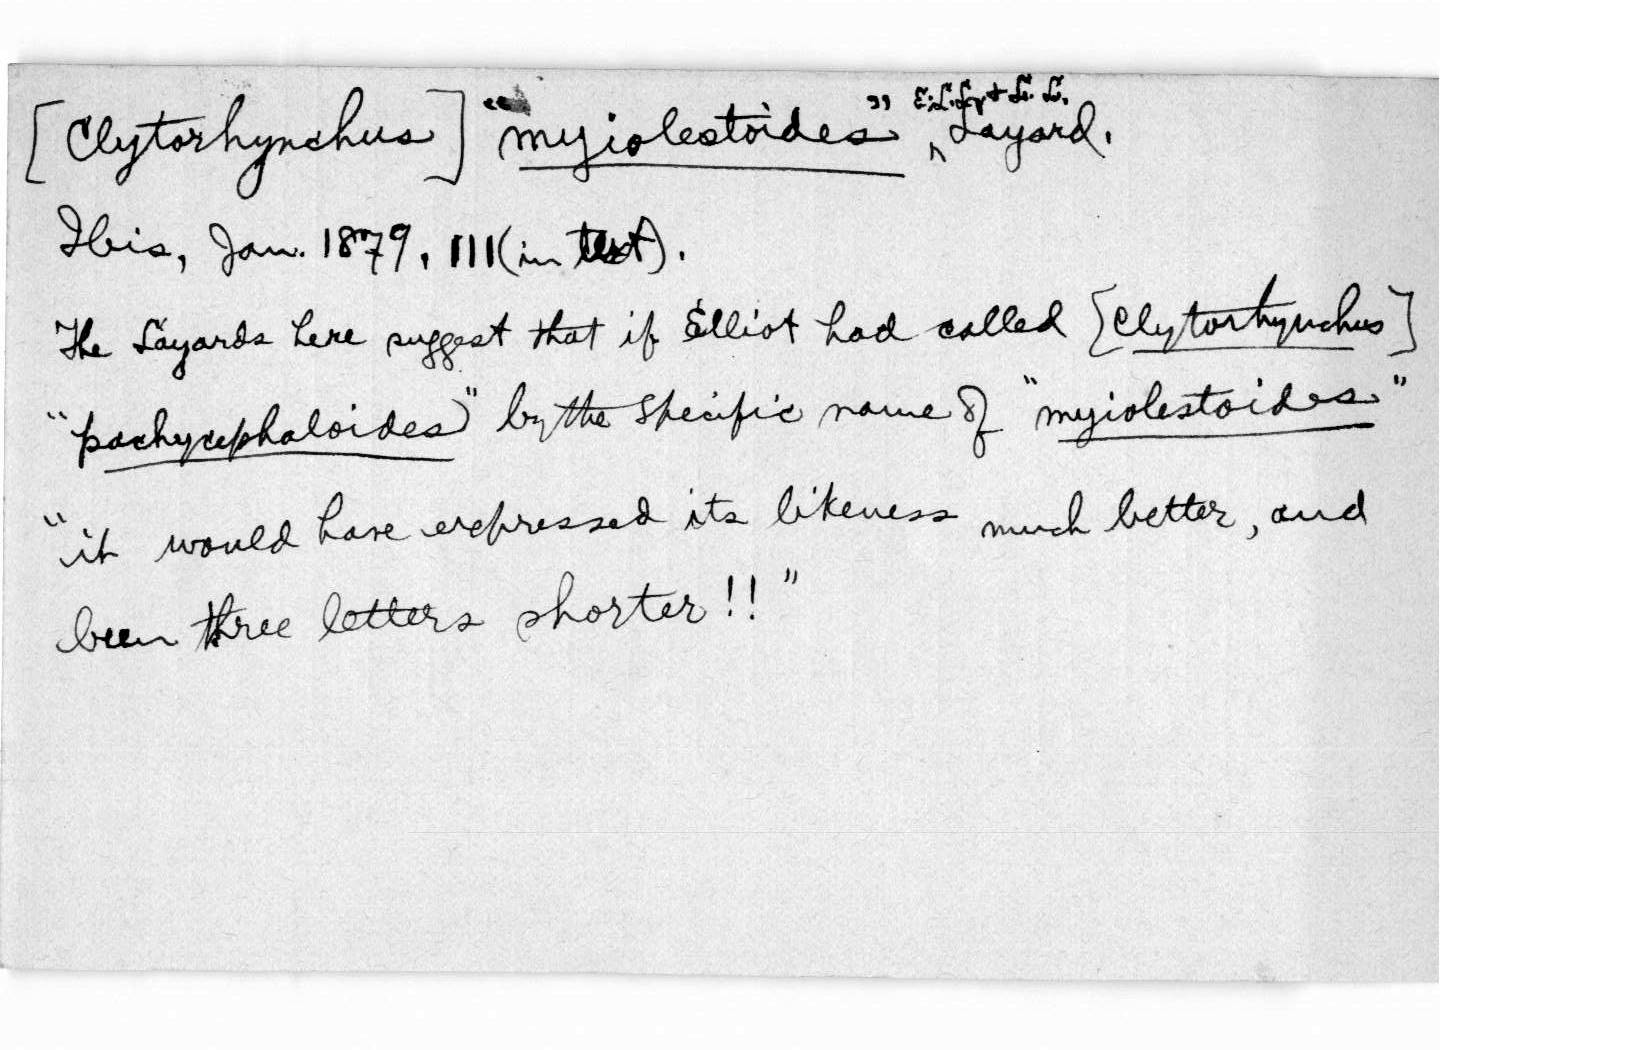 [Clytorhynchus] "myiolestoides" ^E.L. Ly + L. L. Layard.
Ibis, Jan. 1879, 111 (in text).
The Layards here suggest that if Elliot had called [Clytorhynchus]
"pachycephaloides" by the specific name of "myiolestoides"
"it would have expressed its likeness much better, and
been three letters shorter!!"